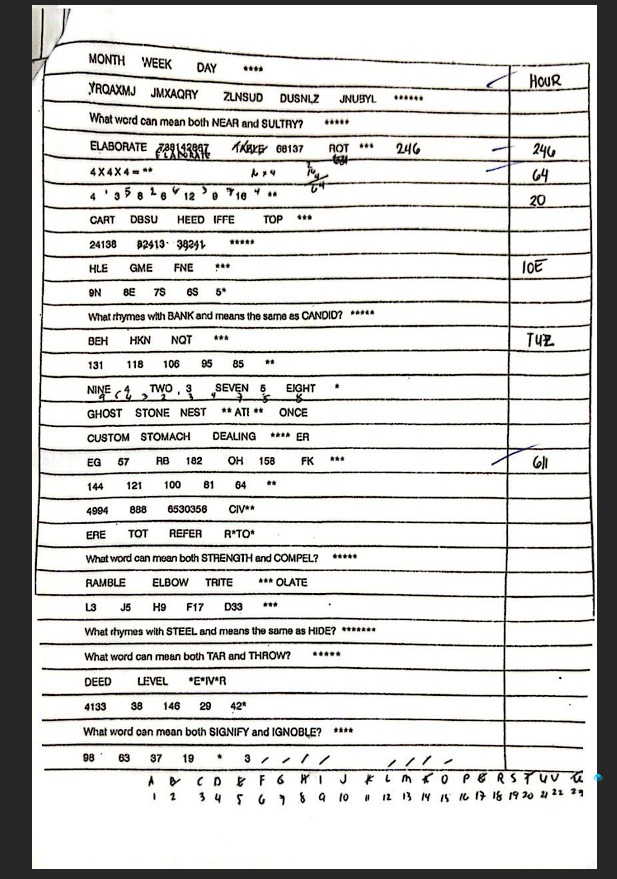 MONTH WEEK DAY **** HOUR
YRQAXMJ JMXAQRY ZLNSUD DUSNLZ JNUBYL ******
What word can mean both NEAR and SULTRY? *****
ELABORATE 738142867 TABLE 68137 ROT *** 246 246
ELABORATE
4 X 4 X 4 = ** 64
4 3 8 6 12 9 16 ** 20
CART DBSU HEED IFFE TOP ***
24138 82413 38241 *****
HLE GME FNE *** IOE
9N 8E 7S 6S 5*
What rhymes with BANK and means the same as CANDID? *****
BEH HKN NQT *** TUZ
131 118 106 95 85 **
NINE 4 TWO 3 SEVEN 5 EIGHT *
GHOST STONE NEST ** ATI ** ONCE
CUSTOM STOMACH DEALING **** ER
EG 57 RB 182 OH 158 FK *** 611
144 121 100 81 64 **
4994 888 6530356 CIV**
ERE TOT REFER R*TO*
What word can mean both STRENGTH and COMPEL? *****
RAMBLE ELBOW TRITE *** OLATE
L3 J5 H9 F17 D33 ***
What rhymes with STEEL and means the same as HIDE? *******
What word can mean both TAR and THROW? *****
DEED LEVEL *E*IV*R
4133 38 146 29 42*
What word can mean both SIGNIFY and IGNOBLE? ****
98 63 37 19 * 3
A B C D E F G H I J K L M O P R S T U V
1 2 3 4 5 6 7 8 9 10 11 12 13 14 15 16 17 18 19 20 21 22